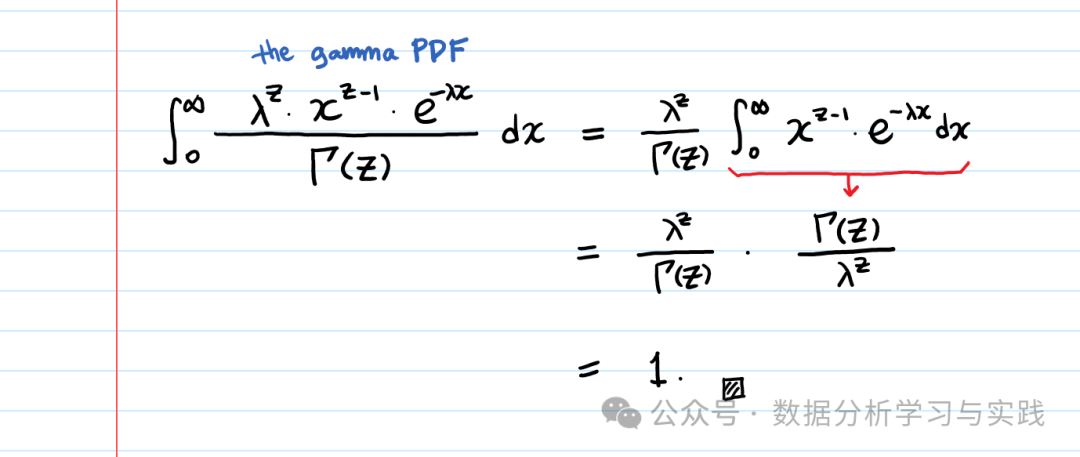 the gamma PDF
∫₀^∞ (λ^z · x^(z-1) · e^(-λx)) / Γ(z) dx = λ^z / Γ(z) ∫₀^∞ x^(z-1) · e^(-λx) dx
= λ^z / Γ(z) · Γ(z) / λ^z
= 1.
公众号 · 数据分析学习与实践